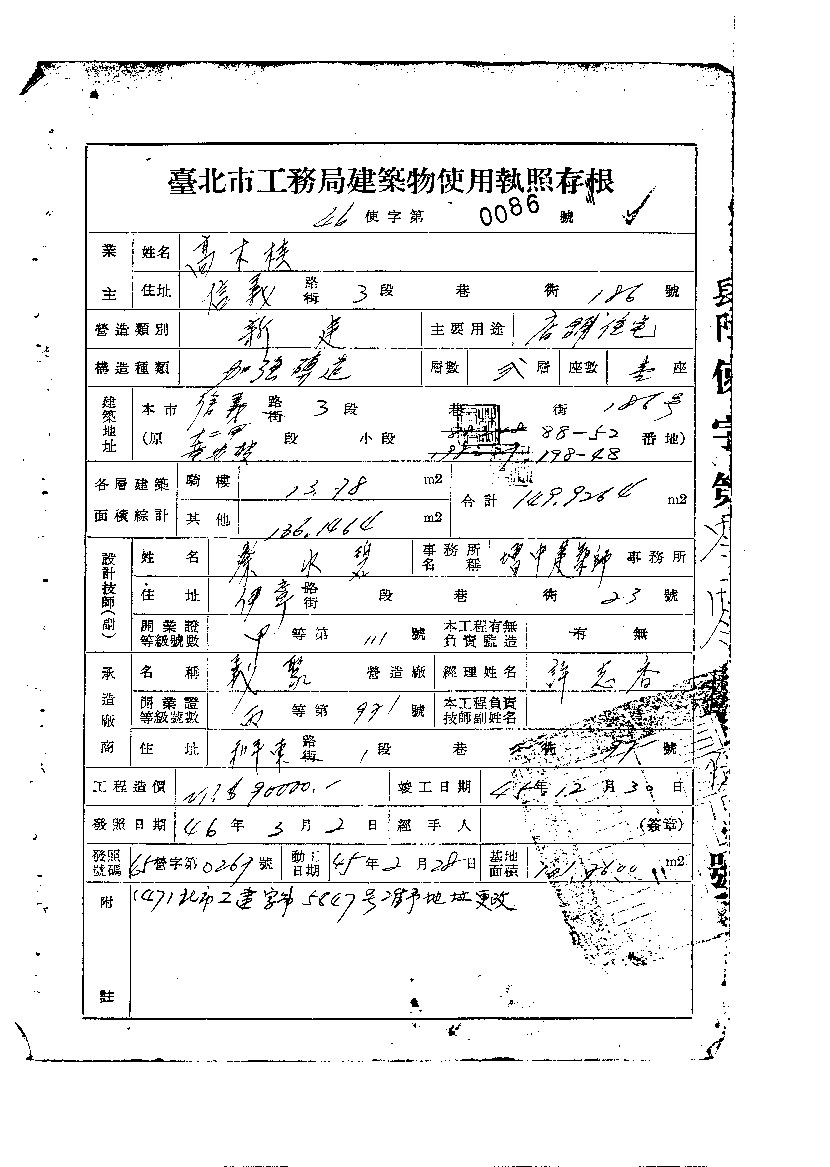 臺北市工務局建築物使用執照存根
46 使字第 0086 號
業主 姓名 高木
住址 信義 路街 3 段 巷 衖 186 號
營造類別 新建 主要用途 店舖住宅
構造種類 加強磚造 層數 弍 層 座數 壹 座
建築地址 本市 信義 路街 3 段 巷 衖 186号
(原 段 小段 88-52 198-48 番地)
各層建築面積綜計 騎樓 13.78 m2 合計 149.9264 m2
其他 136.1464 m2
設計技師(副) 姓名 水 事務所名稱 建築師 事務所
住址 路街 段 巷 衖 23 號
開業證等級號數 甲 等第 111 號 本工程有無負責監造 有 無
承造廠商 名稱 義聚 營造廠 經理姓名 許志香
開業證等級號數 等第 971 號 本工程負責技師副姓名
住址 和平東 路街 1 段 巷 衖 號
工程造價 NT$ 90000.- 竣工日期 45 年 12 月 30 日
發照日期 46 年 3 月 2 日 經手人 (簽章)
發照號碼 45 營字第 0269 號 動工日期 45 年 2 月 28 日 基地面積 m2
附註 (47)北市工建字第5847号准予地址更改
使字第
號